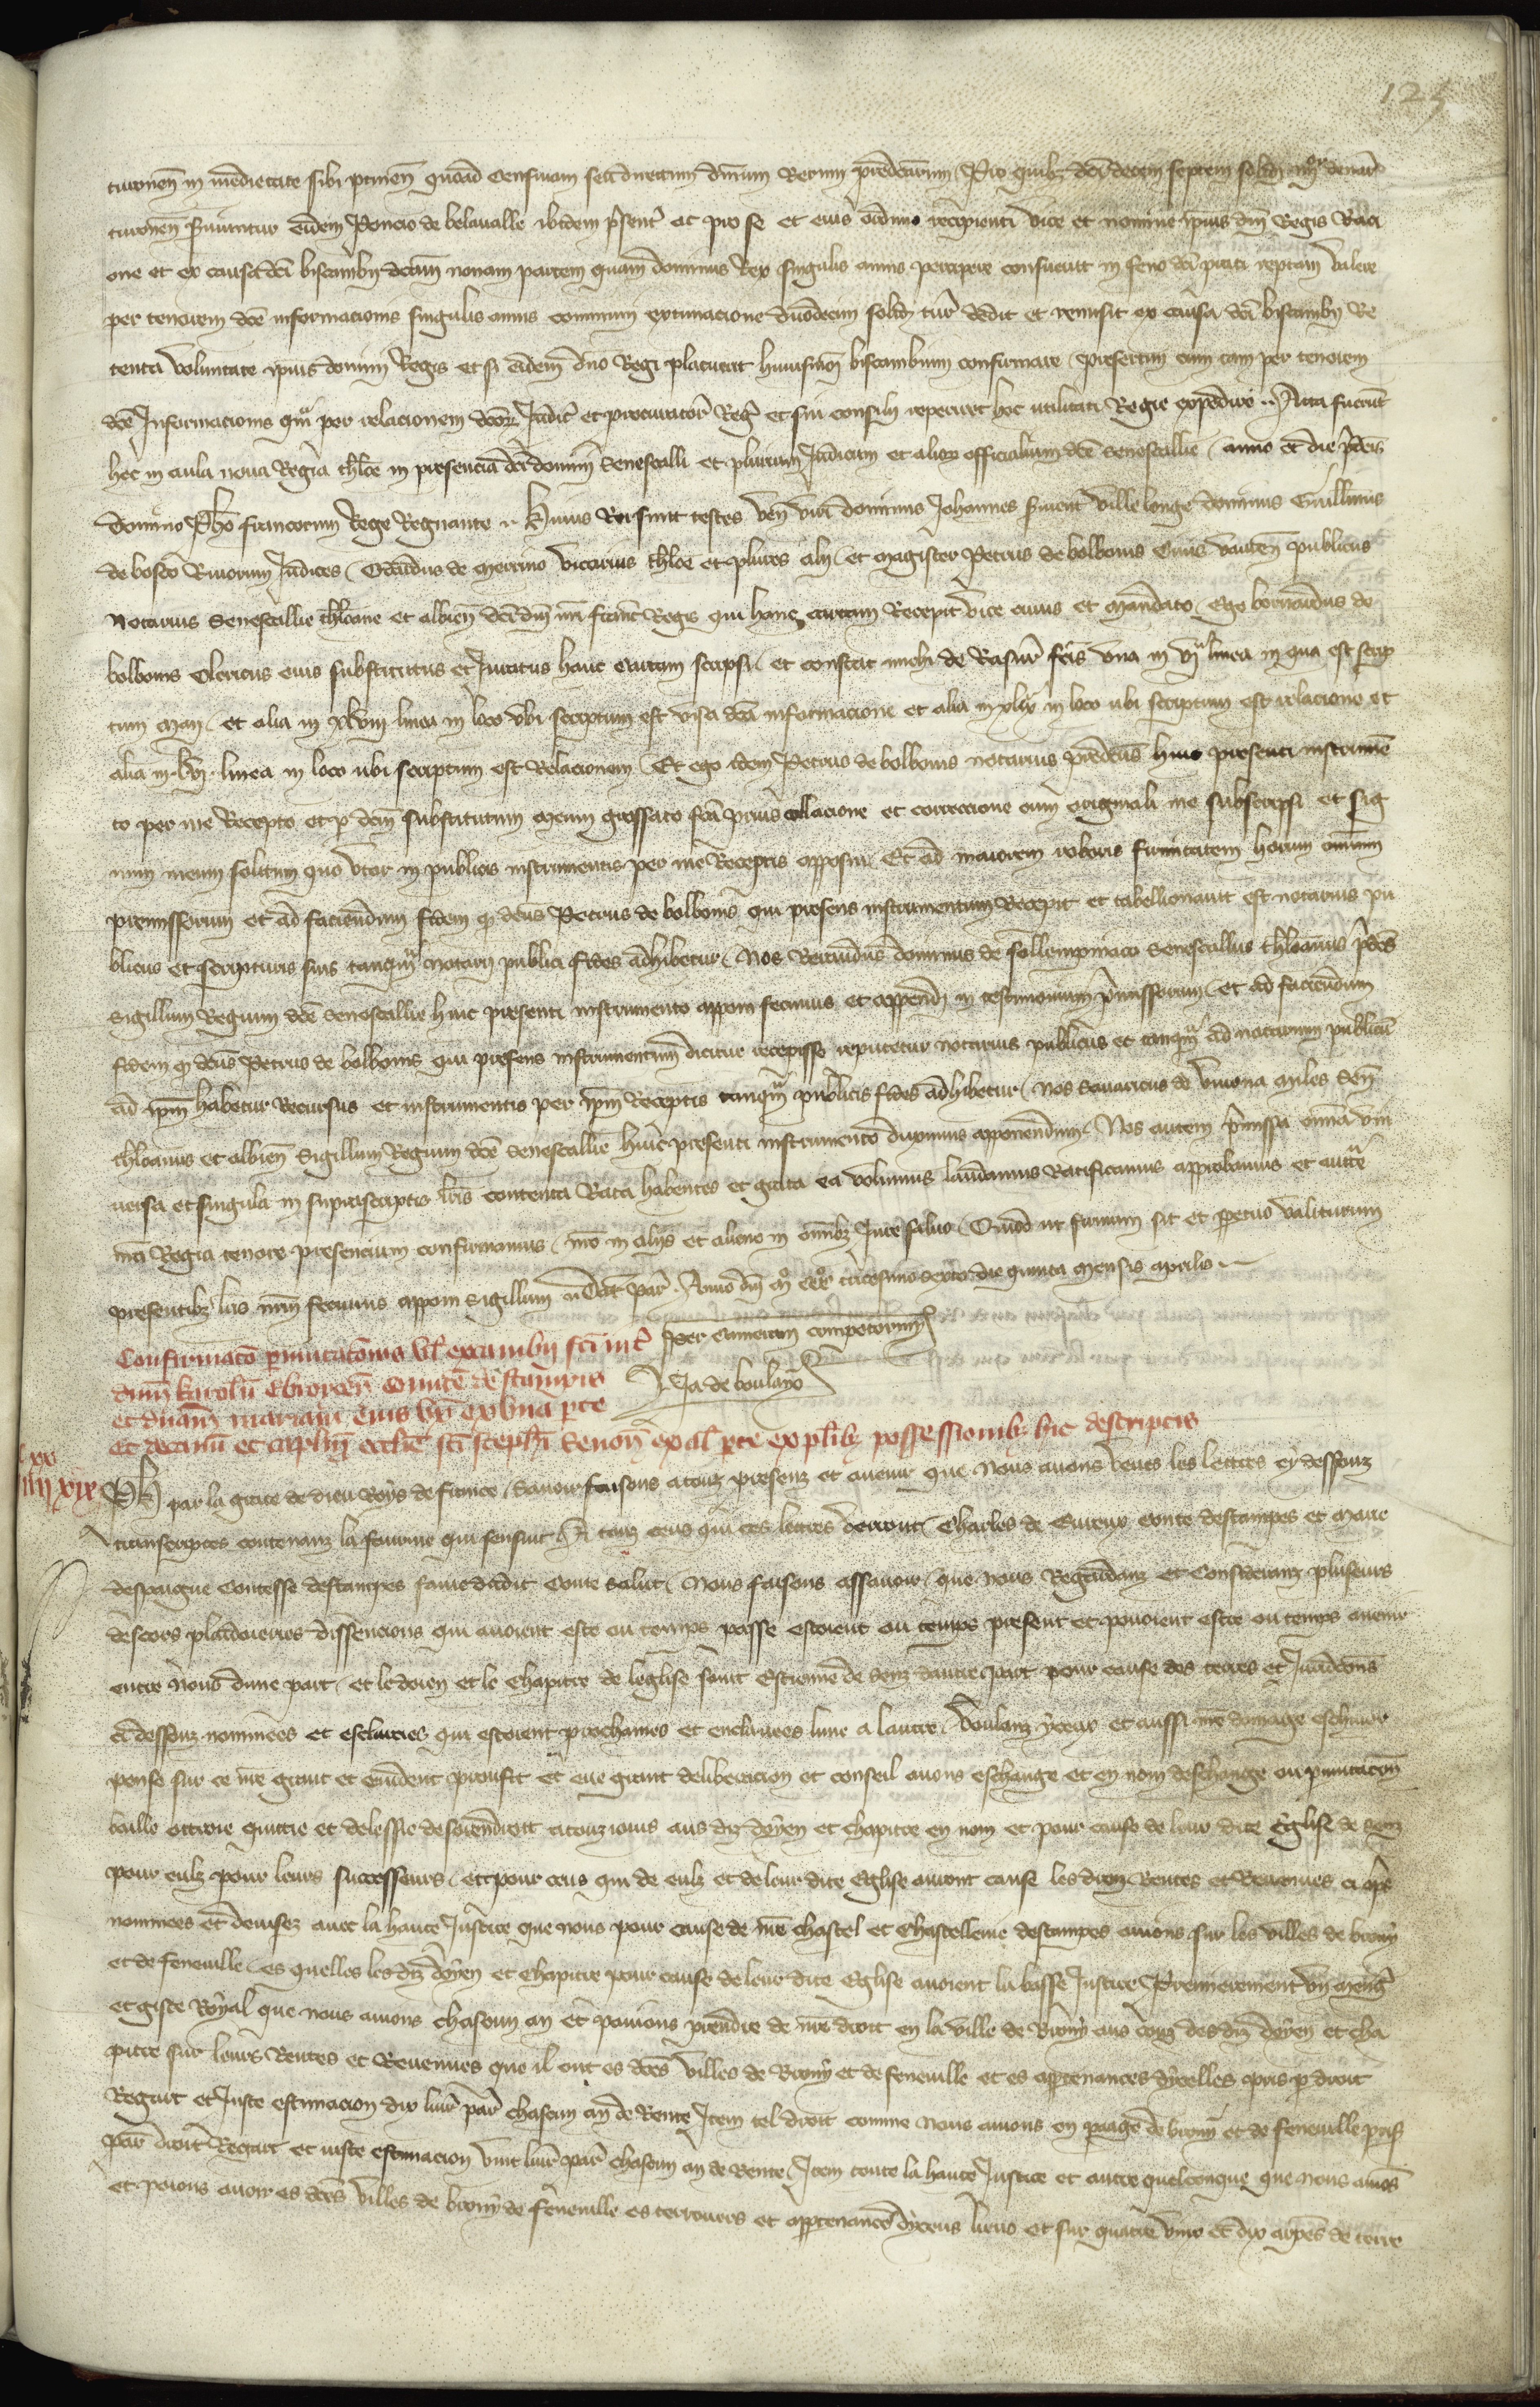 125
turonen in medietate sibi ptinen quoad censivam seu directum dnium rerum predictarum Pro quibz dci decem septem solid iiijor denar
turonen servientur eidem Poncio de belavalle ibidem psenti ac pro se et eius ordinio recipienti vice et nomine ipius dni Regis Raci
one et ex causa dci biscambii dcam nonam partem quam dominus Rex singulis annis percipere consuevit in feno dci prati reptam valere
per tenorem dce informacionis singulis annis communi extimacione duodecim solid tur dedit et remisit ex causa dci biscambii Re
tenta voluntate ipius domini Regis et si eidem dno Regi placuerit huiusmodi biscambium confirmare presertim cum tam per tenorem
dce Informacionis qm per relacionem dcorz Iudic et procurator Reg et sui consilii reperiret hoc utilitati Regie expedire Acta fuerunt
hec in aula nova Regia thlose in presencia dci domini Senescalli et plurium Iudicum et alior officialium dce Senescallie anno et die pdcis
domino Pho francorum Rege Regnante Huius Rei sunt testes ven viri dominus Johannes ville longe dominus Guillmus
de bosco Rivorum Iudices Odardus de merrino vicarius thlose et plures alii et magister Petrus de bolbonis publicus
Notarius Senescallie thlosane et albien dci dni nri franc Regis qui hanc cartam Recepit vice cuius et mandato Ego bernardus de
bolbonis Clericus eius substitutus et Iuratus hanc cartam scripsi et constat michi de Rasur fcis una in vja linea in qua est scrip
tum man et alia in xlviij linea in loco ubi scriptum est visa dca informacione et alia in xlix in loco ubi scriptum est relacione et
alia in lvj linea in loco ubi scriptum est Relacionem Et ego idem Petrus de bolbonis notarius predcus huic presenti instrumen
to per me Recepto et p dcm substitutum meum grossato fca prius collacione et correccione cum originali me subscripsi et sig
num meum solitum quo utor in publicis instrumentis per me Receptis apposui Et ad maiorem roboris firmitatem horum omnium
premissorum et ad faciendum fidem q dcus Petrus de bolbonis qui presens instrumentum Recepit et tabellionavit est notarius pu
blicus et scripturis suis tanqm notarii publici fides adhibetur Nos Beraudus dominus de sollempniaco Senescallus thlosanus pdcus
Sigillum Regium dce Senescallie huic presenti instrumento apponi fecimus et appendi in testimonium pmissorum et ad faciendum
fidem q dcus Petrus de bolbonis qui presens instrumentum dicitur recepisse reputetur notarius publicus et tanqm ad notarium publicu
ad ipm habetur Recursus et instrumentis per ipm Receptis tanqm publicis fides adhibetur Nos Savaricus de vivona miles Sen
thlosanus et albien Sigillum Regium dce Senescallie huic presenti instrumento duximus apponendum Nos autem pmissa omnia uni
versa et singula in suprascriptis lris contenta Rata habentes et grata ea volumus laudamus Ratificamus approbamus et auctte
nra Regia tenore presencium confirmamus nro in aliis et alieno in omibz Iure salvo Quod ut firmum sit et ppetuo valiturum
presentibz lris nrm fecimus apponi Sigillum Dat Par Anno dni mo ccco tricesimo sexto die quinta mensis aprilis
Per Cameram compotorum
Ja de boulayo
Confirmaco pmutatonis vl excambii fci int
dnm karolu Ebroicen Comite de stampis
et dnam mariam eius ux ex una pte
et decanu et caplm ecclie sci stephi Senon ex al pte ex plibz possessionibz hic descriptis
iiij xx xix
Ph par la grace de dieu Roys de france Savoir faisons a touz presenz et avenir que Nous avons veues les lettres cy dessouz
transcriptes contenanz la fourme qui sensuit A touz ceus qui ces lettres verront Charles de Evreux conte destampes et Marie
despaigne Contesse destampes fame dudit Conte Salut Nous faisons assavoir que Nous Regardanz et Consideranz pluseurs
descors plaidoieries dissencions qui avoient este ou temps passe estoient ou temps present et povoient estre ou temps avenir
entre Nous dune part et le doien et le chapitre de leglise saint Estienne de Senz dautre part pour cause des terres et Juridcons
ci dessouz nommees et esclarcies qui estoient prochaines et enclavees lune a lautre voulanz yceux et aussi nre domage eschiver
pense sur ce nre grant et evident proufit et eue grant deliberacion et conseil avons eschange et en nom deschange ou pmutacion
baille ottroie quittie et delessie desorendroit a touzjours aus diz doyen et chapitre en nom et pour cause de leur dite Eglise de Senz
pour eulz pour leurs successeurs et pour ceus qui de eulz et de leur dite Eglise auront cause les droiz Rentes et Revenues ci apres
nommees et devisez avec la haute Justice que nous pour cause de nre chastel et Chastellenie destampes avions sur les villes de brouy
et de feneville es quelles les diz doyen et Chapitre pour cause de leur dite Eglise avoient la basse Justice Premierement un meng
et giste Royal que nous avions chascun an et povions prendre de nre droit en la ville de Brouy aus couz des diz doyen et cha
pitre sur leurs Rentes et Revenues que il ont es dces villes de Brouy et de feneville et es appartenances dycelles pris p droit
Regart et Juste estimacion dix livr par chascun an de Rente Item tel droit comme Nous avions en paage de brouy et de feneville pris
par droit Regart et iuste estimacion vint livr par chascun an de Rente Item toute la haute Justice et autre quelconque que nous avions
et poions avoir es dces villes de brouy de feneville es terrouers et appartenances dyceus lieus et sur quatre vins et dix arpens de terre